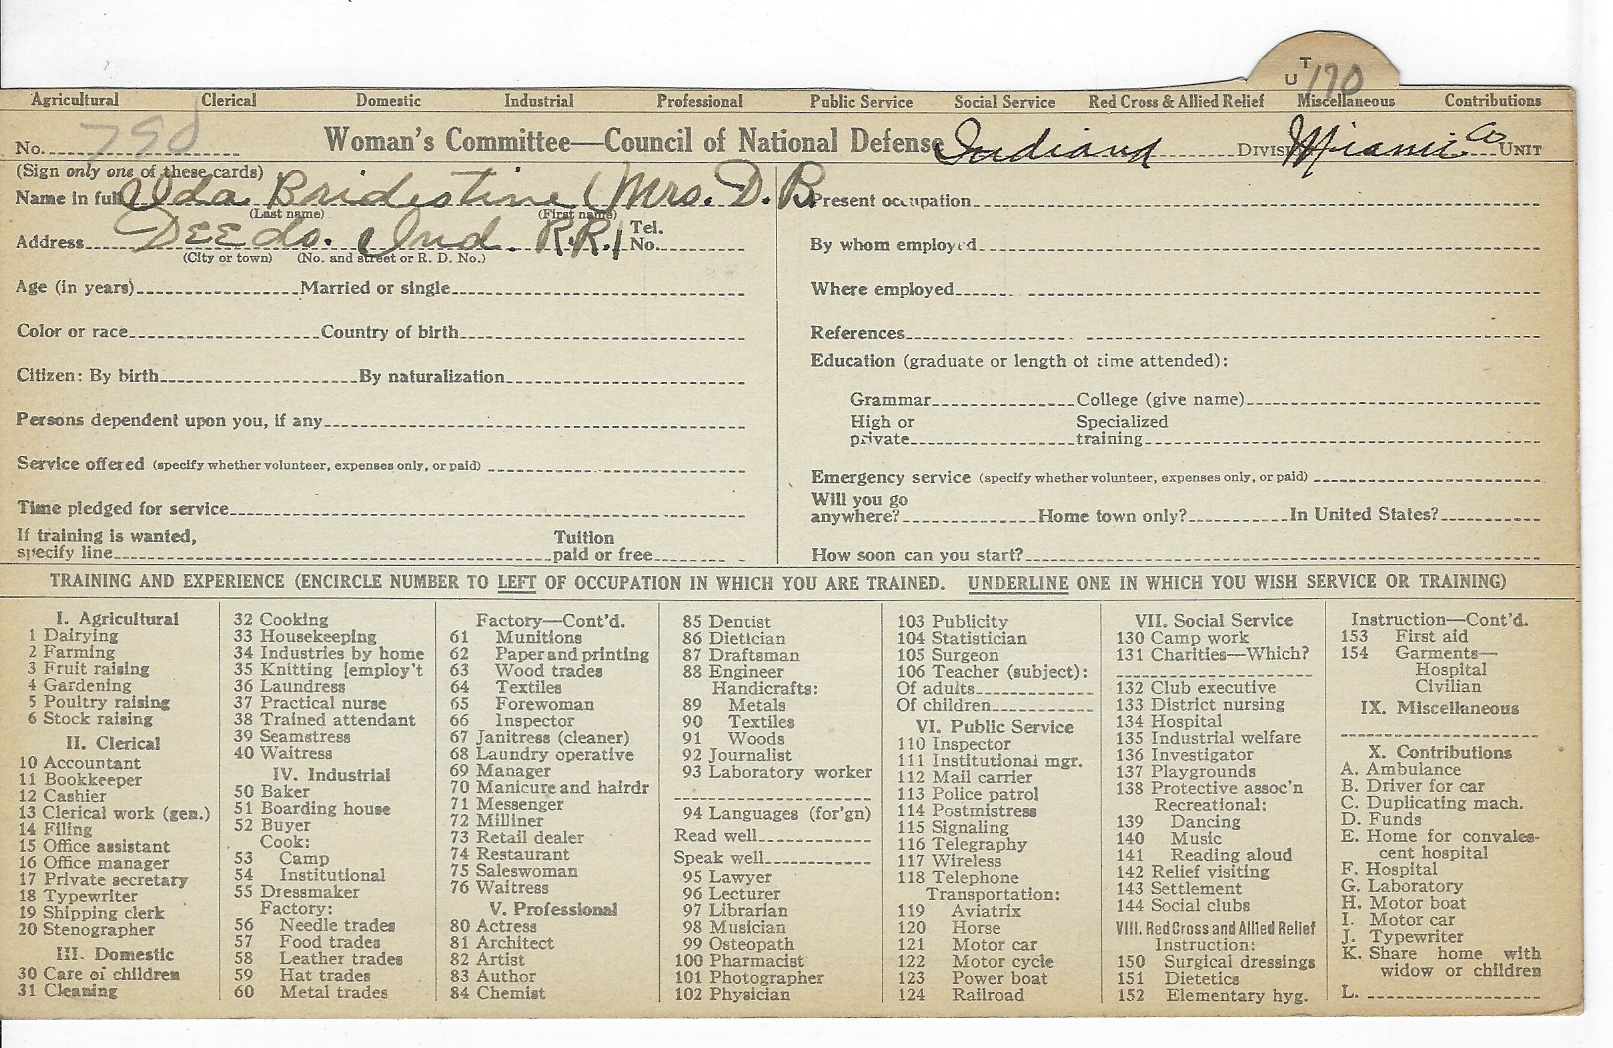 U T 170
Agricultural Clerical Domestic Industrial Professional Public Service Social Service Red Cross & Allied Relief Miscellaneous Contributions
No. 790 Woman's Committee—Council of National Defense Indiana DIVISION Miami Co UNIT
(Sign only one of these cards)
Name in full Ida Bridestine (Mrs. D. B.
(Last name) (First name)
Address Deedo. Ind. R.R.1 Tel. No.
(City or town) (No. and street or R. D. No.)
Age (in years) Married or single
Color or race Country of birth
Citizen: By birth By naturalization
Persons dependent upon you, if any
Service offered (specify whether volunteer, expenses only, or paid)
Time pledged for service
If training is wanted, specify line Tuition paid or free
Present occupation
By whom employed
Where employed
References
Education (graduate or length of time attended):
Grammar College (give name)
High or private Specialized training
Emergency service (specify whether volunteer, expenses only, or paid)
Will you go anywhere? Home town only? In United States?
How soon can you start?
TRAINING AND EXPERIENCE (ENCIRCLE NUMBER TO LEFT OF OCCUPATION IN WHICH YOU ARE TRAINED. UNDERLINE ONE IN WHICH YOU WISH SERVICE OR TRAINING)
I. Agricultural
1 Dairying
2 Farming
3 Fruit raising
4 Gardening
5 Poultry raising
6 Stock raising
II. Clerical
10 Accountant
11 Bookkeeper
12 Cashier
13 Clerical work (gen.)
14 Filing
15 Office assistant
16 Office manager
17 Private secretary
18 Typewriter
19 Shipping clerk
20 Stenographer
III. Domestic
30 Care of children
31 Cleaning
32 Cooking
33 Housekeeping
34 Industries by home
35 Knitting [employ't
36 Laundress
37 Practical nurse
38 Trained attendant
39 Seamstress
40 Waitress
IV. Industrial
50 Baker
51 Boarding house
52 Buyer
Cook:
53 Camp
54 Institutional
55 Dressmaker
Factory:
56 Needle trades
57 Food trades
58 Leather trades
59 Hat trades
60 Metal trades
Factory—Cont'd.
61 Munitions
62 Paper and printing
63 Wood trades
64 Textiles
65 Forewoman
66 Inspector
67 Janitress (cleaner)
68 Laundry operative
69 Manager
70 Manicure and hairdr
71 Messenger
72 Milliner
73 Retail dealer
74 Restaurant
75 Saleswoman
76 Waitress
V. Professional
80 Actress
81 Architect
82 Artist
83 Author
84 Chemist
85 Dentist
86 Dietician
87 Draftsman
88 Engineer
Handicrafts:
89 Metals
90 Textiles
91 Woods
92 Journalist
93 Laboratory worker
94 Languages (for'gn)
Read well
Speak well
95 Lawyer
96 Lecturer
97 Librarian
98 Musician
99 Osteopath
100 Pharmacist
101 Photographer
102 Physician
103 Publicity
104 Statistician
105 Surgeon
106 Teacher (subject):
Of adults
Of children
VI. Public Service
110 Inspector
111 Institutional mgr.
112 Mail carrier
113 Police patrol
114 Postmistress
115 Signaling
116 Telegraphy
117 Wireless
118 Telephone
Transportation:
119 Aviatrix
120 Horse
121 Motor car
122 Motor cycle
123 Power boat
124 Railroad
VII. Social Service
130 Camp work
131 Charities—Which?
132 Club executive
133 District nursing
134 Hospital
135 Industrial welfare
136 Investigator
137 Playgrounds
138 Protective assoc'n
Recreational:
139 Dancing
140 Music
141 Reading aloud
142 Relief visiting
143 Settlement
144 Social clubs
VIII. Red Cross and Allied Relief
Instruction:
150 Surgical dressings
151 Dietetics
152 Elementary hyg.
Instruction—Cont'd.
153 First aid
154 Garments—
Hospital
Civilian
IX. Miscellaneous
X. Contributions
A. Ambulance
B. Driver for car
C. Duplicating mach.
D. Funds
E. Home for convales-
cent hospital
F. Hospital
G. Laboratory
H. Motor boat
I. Motor car
J. Typewriter
K. Share home with
widow or children
L.